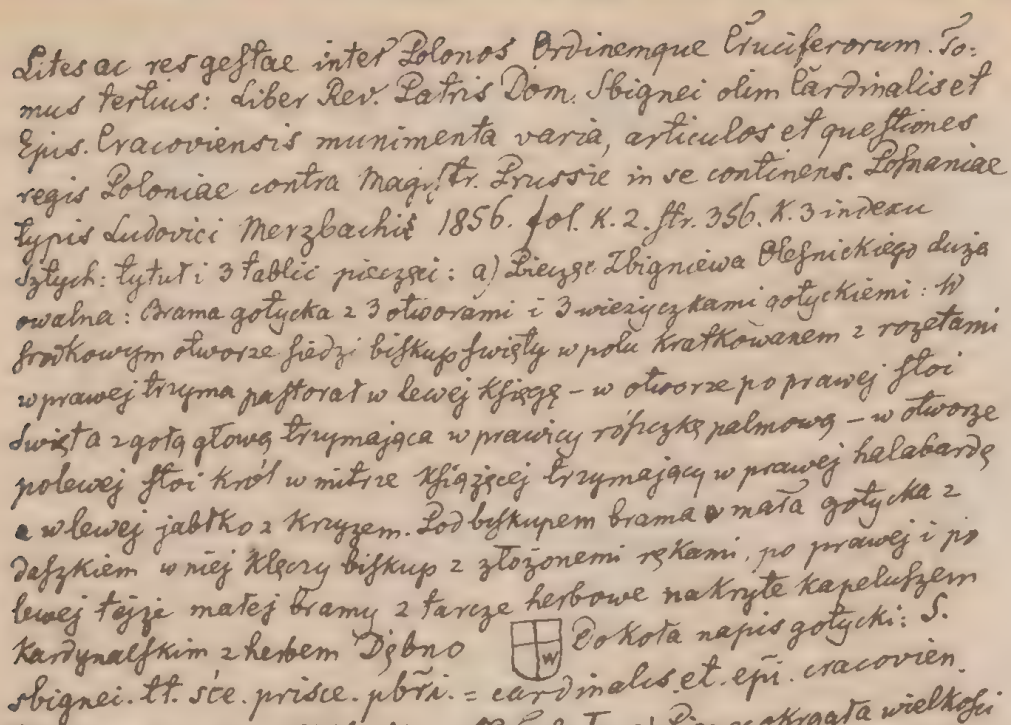 Lites ac res gestae inter Polonos Ordinemque Cruciferorum. To:
mus tertius: Liber Rev. Patris Dom. Sbignei olim Cardinalis et
Epis. Cracoviensis munimenta varia, articulos et questiones
regis Poloniae contra Magistr. Prussie in se continens. Posnaniae
typis Ludovici Merzbachii 1856. fol. K. 2. str. 356. K. 3 indexu
Sztych: tytuł i 3 tablic pieczęci: a) Pieczęć Zbigniewa Oleśnickiego duża
owalna: Brama gotycka z 3 otworami i 3 wieżyczkami gotyckiemi: W
środkowym otworze siedzi biskup święty w polu kratkowanem z rozetami
w prawej trzyma pastorał w lewej księgę – w otworze po prawej stoi
święta z gołą głową trzymająca w prawicy rószczkę palmową – w otworze
po lewej stoi król w mitrze książęcej trzymający w prawej halabardę
a w lewej jabłko z krzyżem. Pod biskupem brama mała gotycka z
daszkiem w niej klęczy biskup z złożonemi rękami, po prawej i po
lewej tejże małej bramy 2 tarcze herbowe nakryte kapeluszem
Kardynalskim z herbem Dębno W Dokoła napis gotycki: S.
sbignei. tt. sce. prisce. pbri. = cardinalis. et. epi. cracovien.
okrągła wielkości